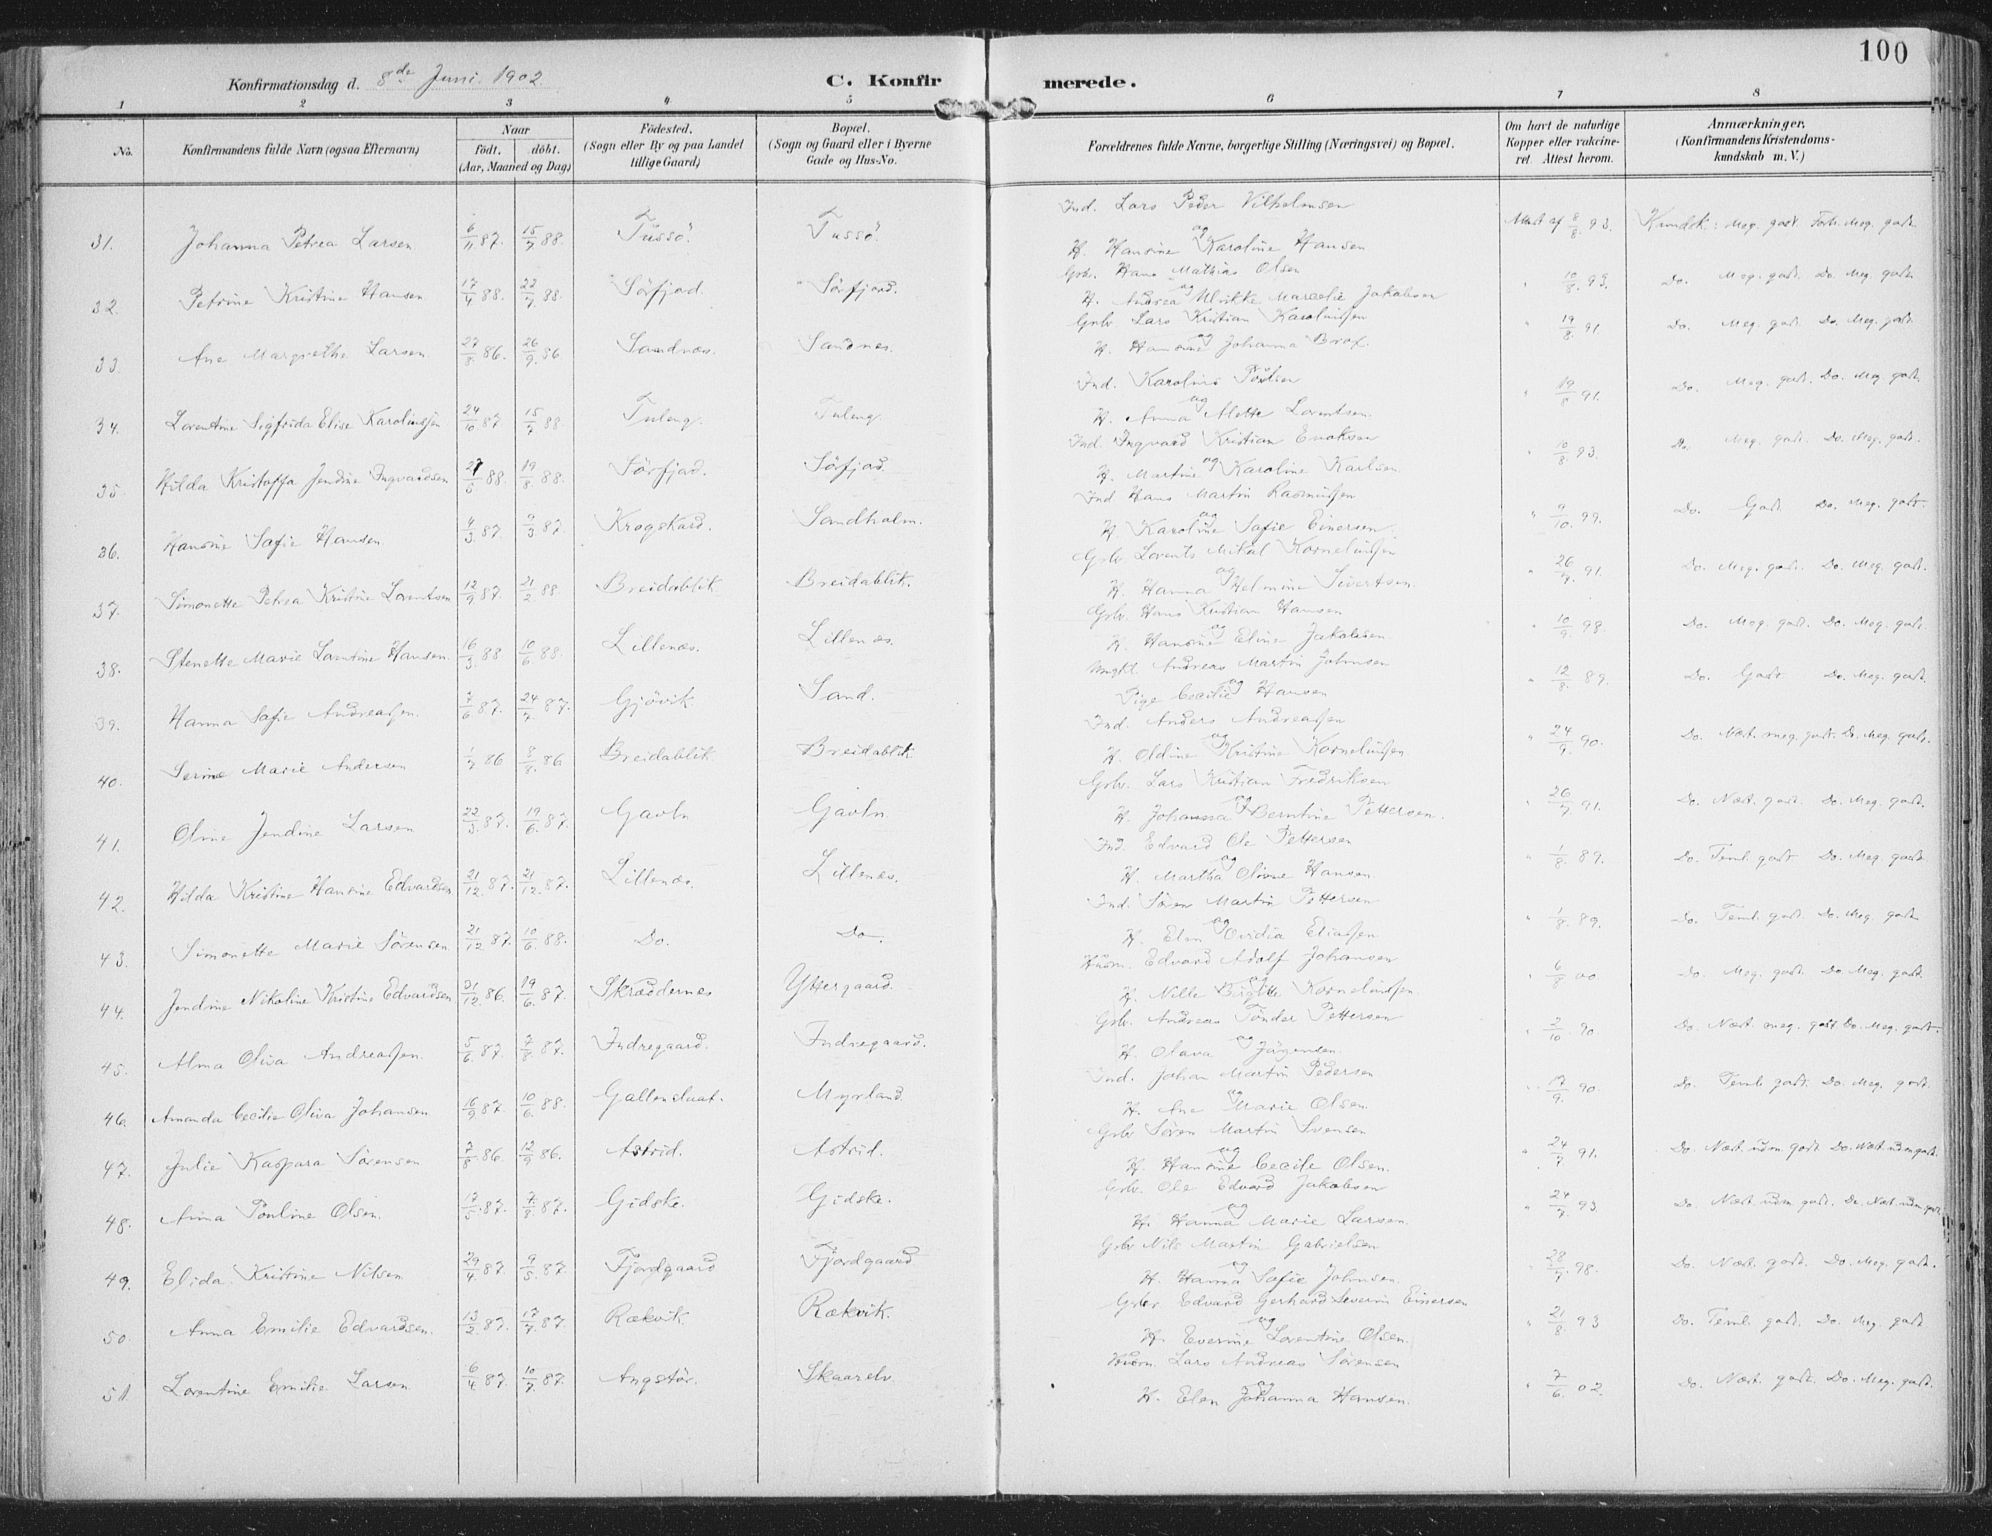 100
Konfirmationsdag d. 8de Juni 1902 C. Konfirmerede.
1 2 3 4 5 6 7 8
No. Konfirmandens fulde Navn (ogsaa Efternavn) Naar födt. döbt. (Aar, Maaned og Dag) Födested. (Sogn eller By og paa Landet tillige Gaard) Bopæl. (Sogn og Gaard eller i Byerne Gade og Hus-No. Forældrenes fulde Navne, borgerlige Stilling (Næringsvei) og Bopæl. Om havt de naturlige Kopper eller vakcineret. Attest herom. Anmærkninger. (Konfirmandens Kristendomskundskab m. V.)
Ind. Lars Peder Vilhelmsen
31. Johanna Petrea Larsen 6/11 87. 15/7 88. Tussö. Tussö. og H. Hansine Karoline Hansen Attest af 8/8 93. Kundsk: Meg. godt. Forh. Meg. godt.
Grbr. Hans Mathias Olsen
32. Petrine Kristine Hansen 17/4 88. 22/7 88. Sörfjord. Sörfjord. og H. Andrea Ulrikke Marselie Jakobsen " 10/8 93. Do. Meg. godt. Do. Meg. godt.
Grbr. Lars Kristian Karolinssen
33. Ane Margrethe Larsen 27/8 86. 26/9 86 Sandnes. Sandnes. og H. Hansine Johanna Brox. " 19/8 91 Do. Meg. godt. Do. Meg. godt.
Ind. Karolius Polsen
34. Lorentine Sigfrida Elise Karolinssen 24/10 87 15/7 88. Tuleng. Tuleng. og H. Anna Alette Lorentsen. " 19/8 91. Do. Meg. godt. Do. Meg. godt.
Ind. Ingvard Kristian Enoksen
35. Hilda Kristoffa Jendine Ingvardsen 27/5 88. 19/8 88. Sörfjord. Söfjord. og H. Martine Karoline Karlsen " 10/8 93. Do. Meg. godt. Do. Meg. godt.
Ind. Hans Martin Rasmussen
36. Hansine Safie Hansen 4/3 87. 9/3 87. Krogskard. Sandholm. og H. Karoline Safie Einersen " 9/10 99. Do. Godt Do. Meg. godt.
Grbr. Lorents Mikal Kornelinssen
37. Simonette Petrea Kristine Lorentsen 12/9 87. 21/2 88. Breidablik. Breidablik. og H. Hanna Helmine Sivertsen " 26/7 91 Do. Meg. godt. Do. Meg. godt.
Grbr. Hans Kristian Hansen
38. Stenette Marie Lorentine Hansen 16/3 88 10/6 88. Lillenæs. Lillenæs. og H. Hansine Eline Jakobsen " 10/9 98. Do. Meg. godt. Do. Meg. godt.
Ungkl. Andreas Martin Johnsen
39. Hanna Safie Andreassen. 7/6 87. 24/7 87. Gjövik Sand. og Pige Cecilie Hansen " 12/8 89. Do. Godt Do. Meg. godt.
Ind. Anders Andreassen
40. Serine Marie Andersen 1/7 86 8/8 86 Breidablik Breidablik og H. Oldine Kristine Kornelinssen " 24/7 90. Do. Næst. meg. godt. Do. Meg. godt.
Grbr. Lars Kristian Fredriksen
41. Oline Jendine Larsen 22/3 87. 19/6 87. Gavln Gavln og H. Johanna Berntine Pettersen. " 26/7 91. Do. Næst. godt. Do. Meg. godt.
Ind. Edvard Ole Pettersen
42. Hilda Kristine Hansine Edvardsen 21/12 87. 21/12 87. Lillenæs. Lillenæs. og H. Martha Oline Hansen " 1/8 89. Do. Teml. godt Do. Meg. godt
Ind. Sören Martin Pettersen
43. Simonette Marie Sörensen 21/12 87. 10/6 88. Do. Do. og H. Elen Ovidia Eliassen " 1/8 89. Do. Teml. godt. Do. Meg. godt
Husm. Edvard Adolf Johansen
44. Jendine Nikoline Kristine Edvardsen 31/12 86. 19/6 87. Skræddernes Yttergaard. og H. Nille Birgitte Kornelinssen " 6/8 00 Do. Meg. godt. Do. Meg. godt.
Grbr. Andreas Tönder Pettersen
45. Alma Oliva Andreassen. 5/6 87. 7/8 87. Indregaard. Indregaard. og H. Olava Jörgensen. " 2/10 90 Do. Næst. meg. godt Do. Meg. godt.
Ind. Johan Martin Pedersen
46. Amanda Cecilie Oliva Johansen 16/9 87. 10/6 88. Gallenskaat. Myrland og H. Ane Marie Olsen. " 17/9 90 Do. Teml. godt. Do. Meg. godt.
Grbr Sören Martin Svensen
47. Julie Kaspara Sörensen 7/8 86. 12/9 86. Astrid. Astrid. og H. Hansine Cecilie Olsen. " 24/7 91. Do. Næst. udm. godt Do. Næst. udm godt.
Grbr. Ole Edvard Jakobsen
48. Anna Pouline Olsen. 17/5 87. 7/8 87. Gidske. Gidske. og H. Hanna Marie Larsen. " 24/7 93. Do. Næst. udm. godt. Do. Næst. udm. godt.
Grbr Nils Martin Gabrielsen
49. Elida Kristine Nilsen 29/4 87. 9/5 87. Fjordgaard Fjordgaard og H. Hanna Safie Johnsen. " 28/7 98. Do. Næst. godt. Do. Meg. godt.
Grbr. Edvard Gerhard Severin Einersen
50. Anna Emilie Edvardsen. 13/2 87. 17/7 87 Rækvik Rækvik. og H. Everine Lorentine Olsen. " 21/8 93 Do. Teml. godt. Do. Meg. godt
Husm. Lars Andreas Sörensen
51 Lorentine Emilie Larsen 6/4 87. 10/7 87. Angstör. Skaarelv. og H. Elen Johanna Hansen. " 7/6 02. Do. Næst. godt. Do. Meg. godt.